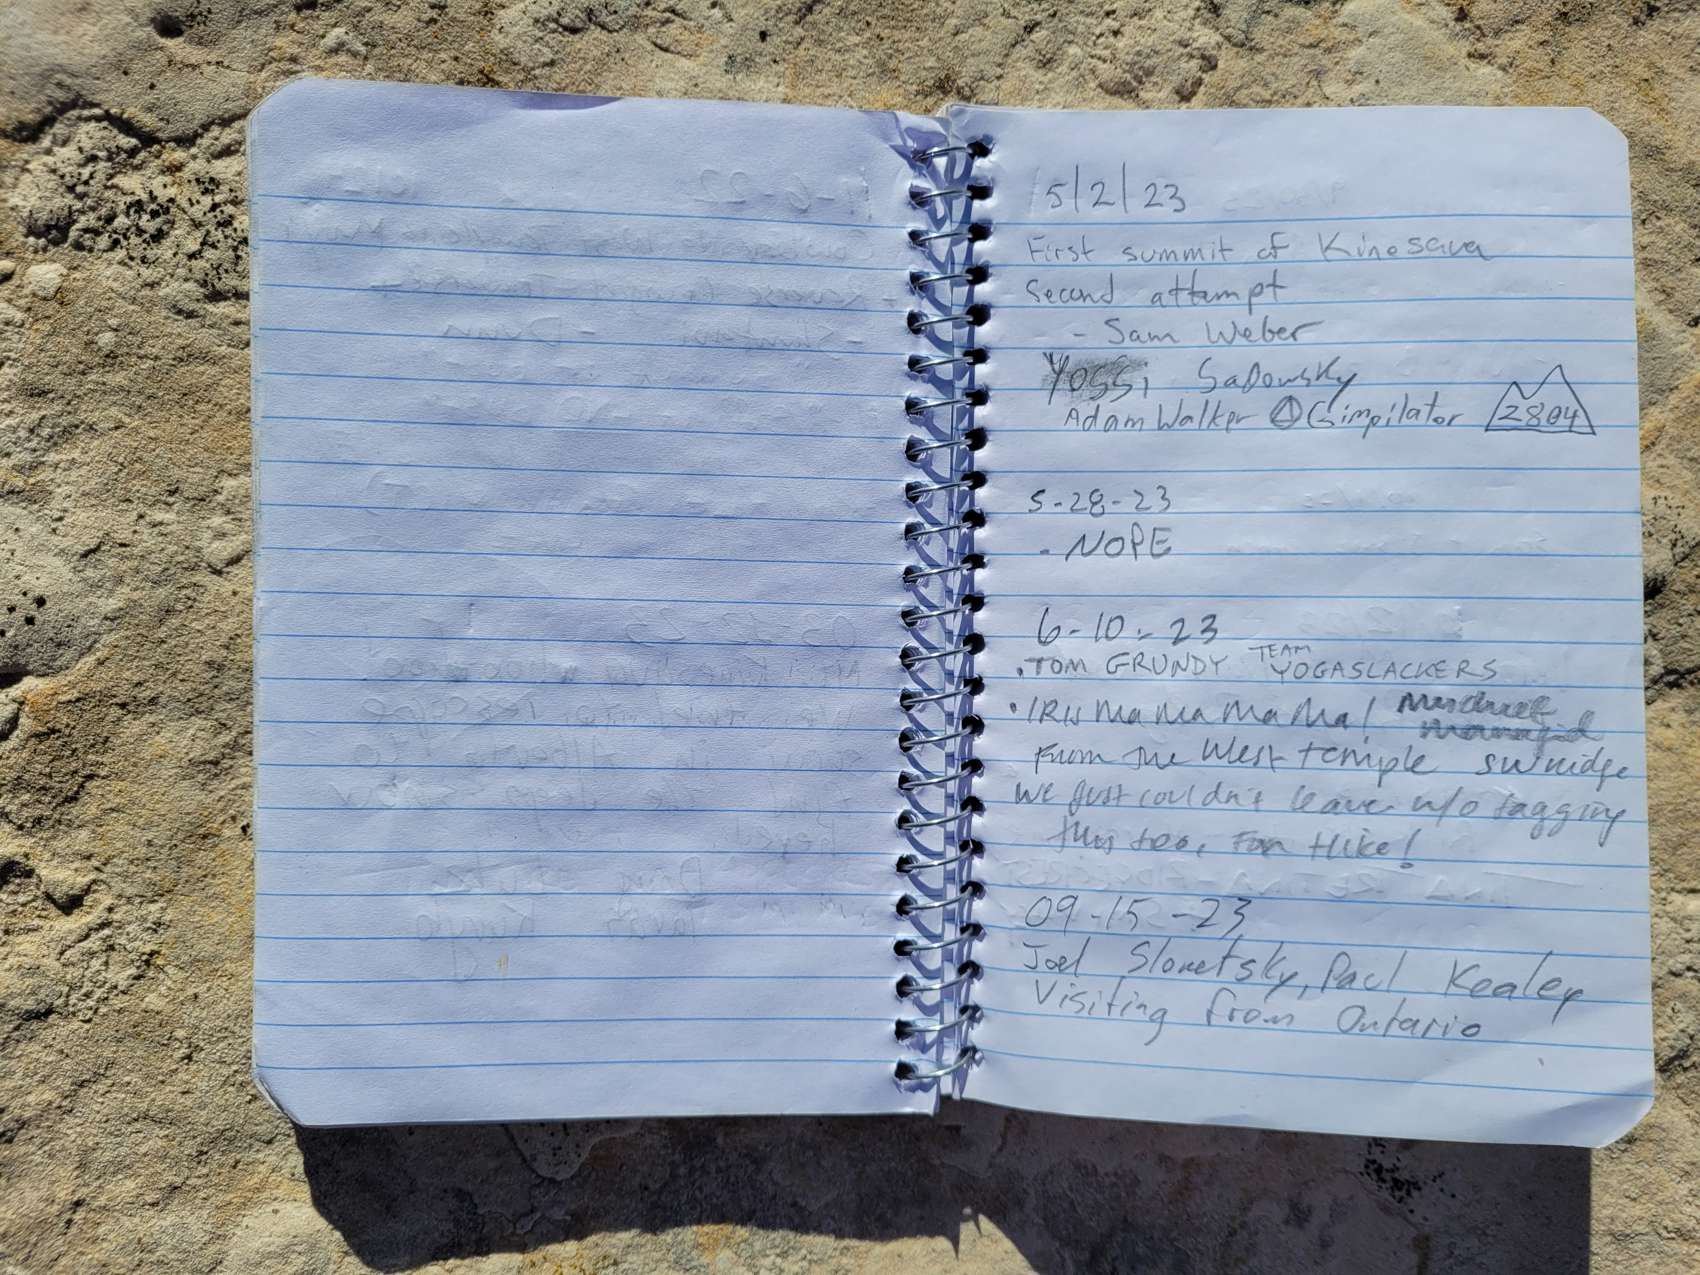 5/2/23
First summit of Kinesava
Second attempt
- Sam Weber
Yossi Sadowsky
Adam Walker Gimpilator 2804
5-28-23
- NOPE
6-10-23
• TOM GRUNDY TEAM YOGASLACKERS
• MaMaMaMa!
From the West Temple SW ridge
We just couldn't leave w/o tagging
this too, Fun Hike!
09-15-23
Joel Slonetsky, Paul Kealey
Visiting from Ontario